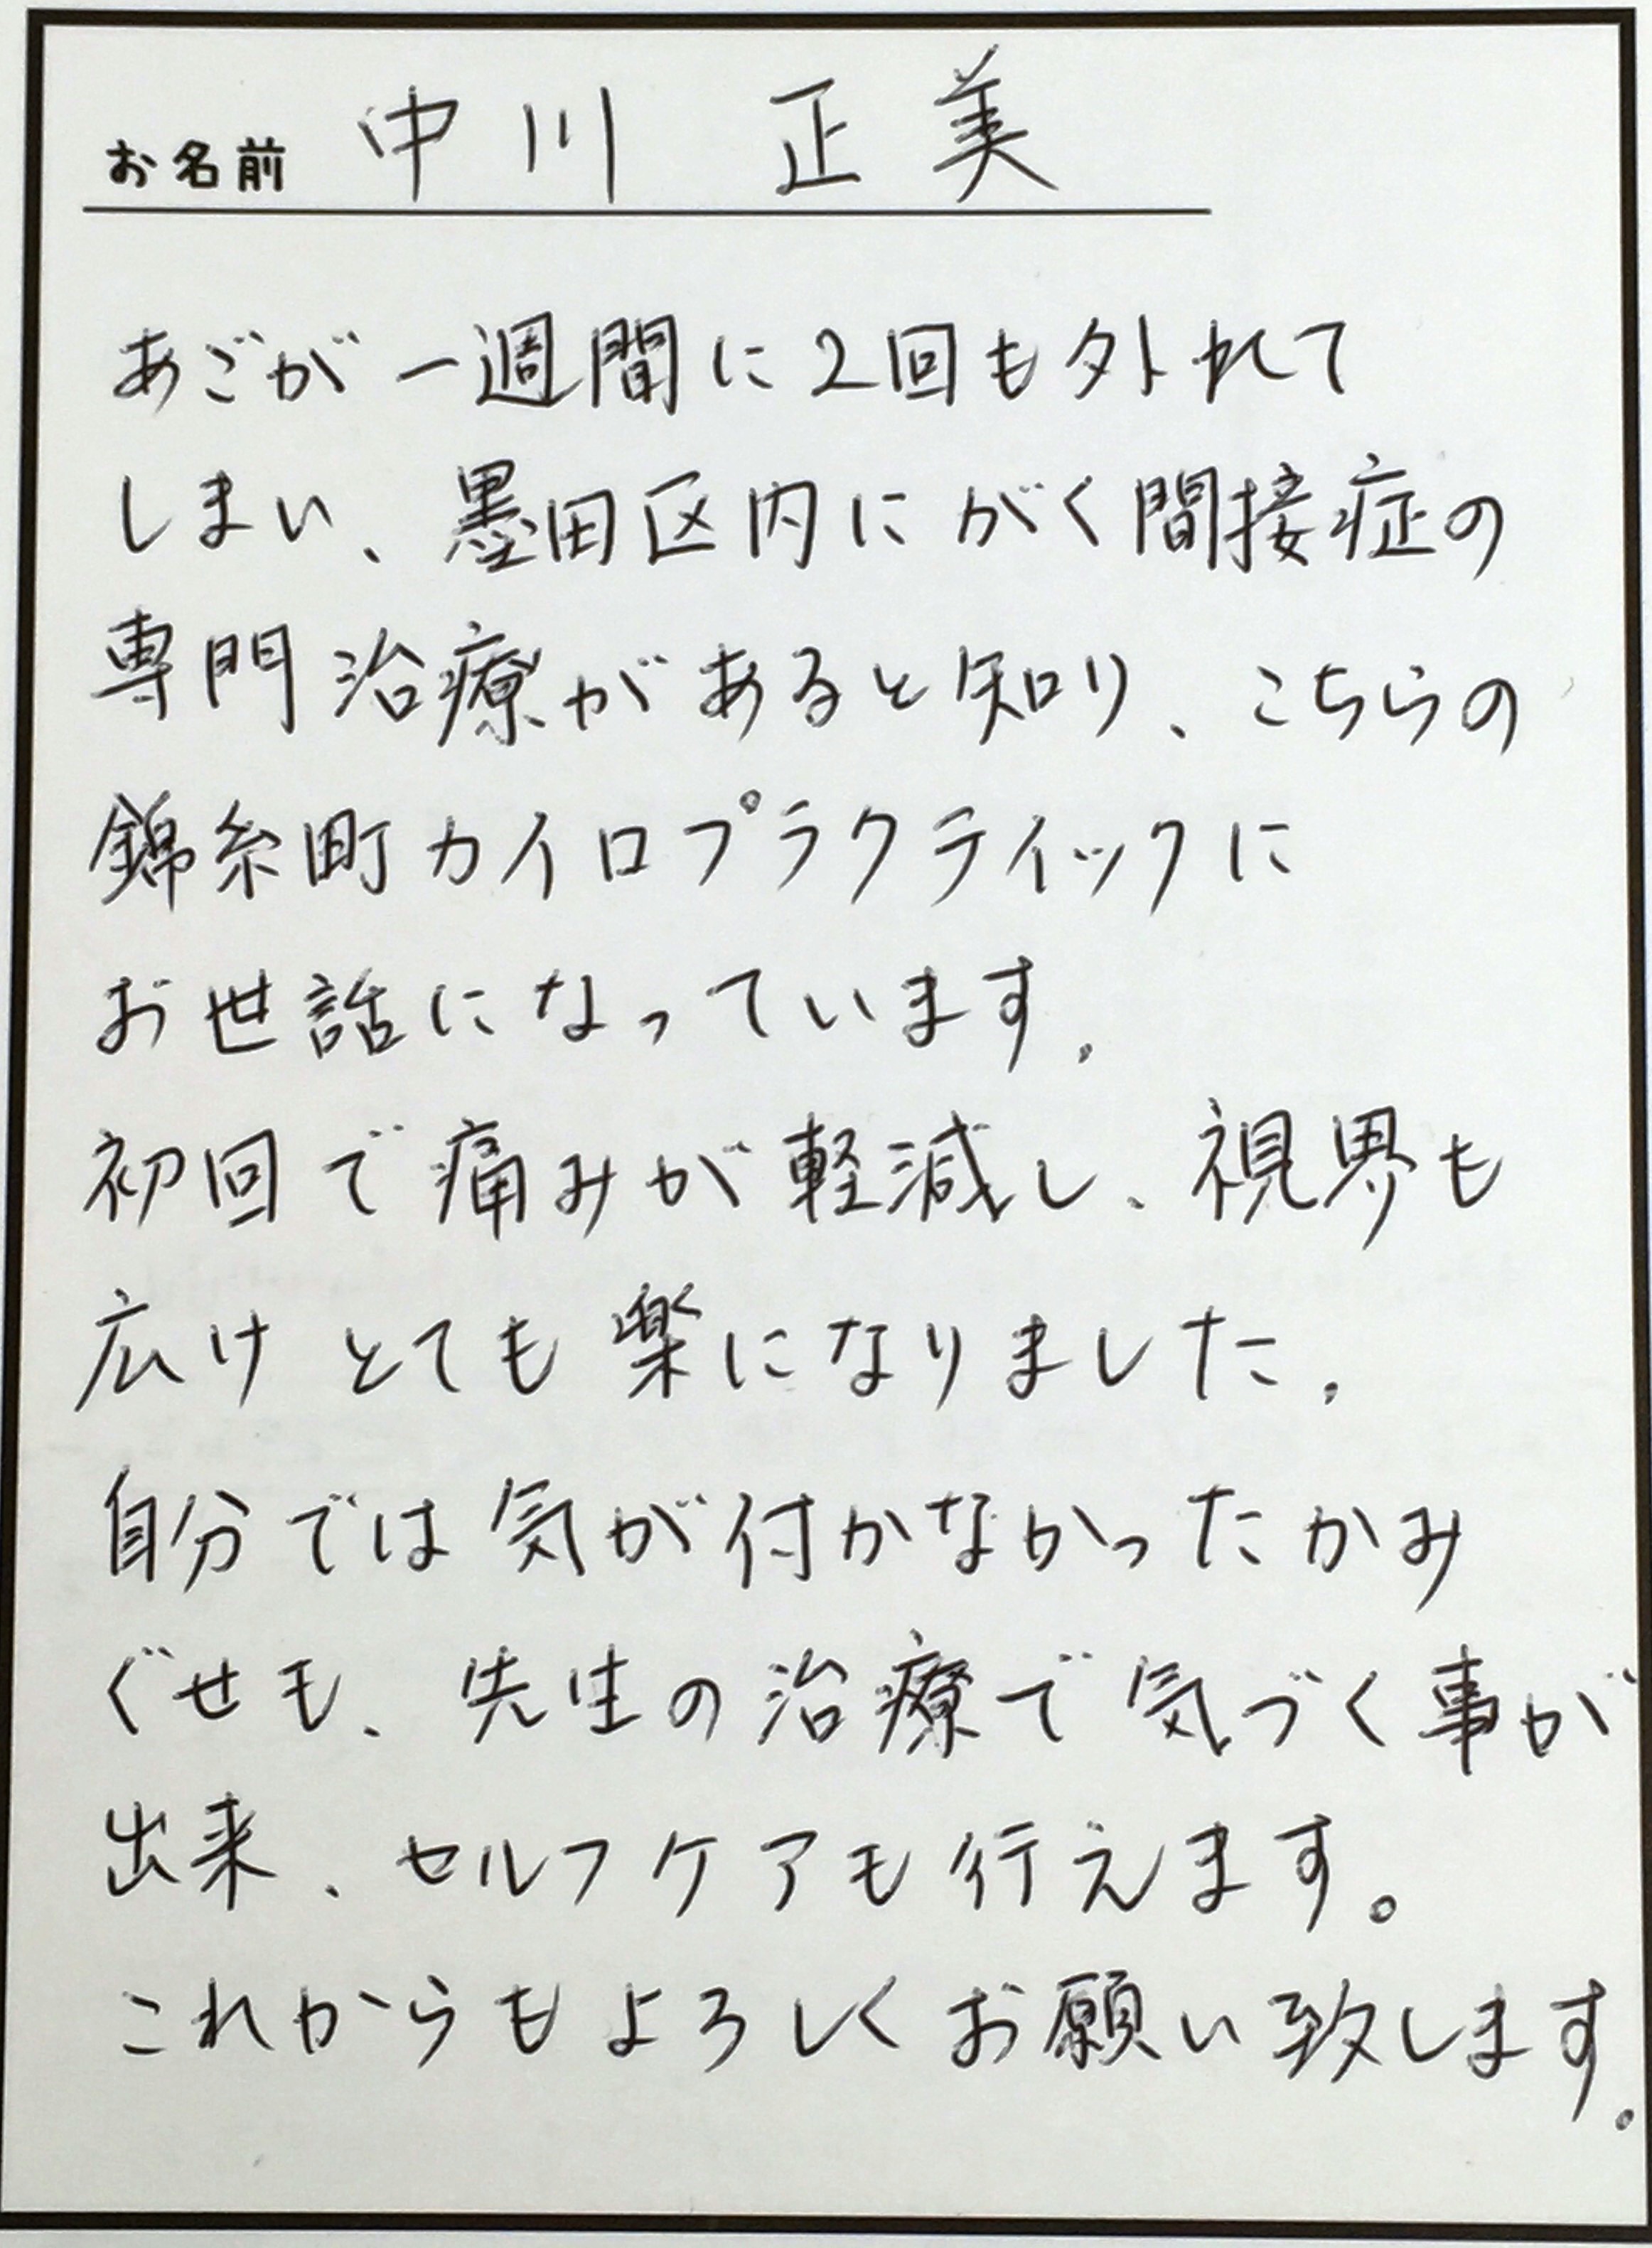 お名前 中川 正美
あごが一週間に2回も外れて
しまい、墨田区内にがく間接症の
専門治療があると知り、こちらの
錦糸町カイロプラクティックに
お世話になっています。
初回で痛みが軽減し、視界も
広け とても楽になりました。
自分では気が付かなかったかみ
ぐせも、先生の治療で気づく事が
出来、セルフケアも行えます。
これからもよろしくお願い致します。